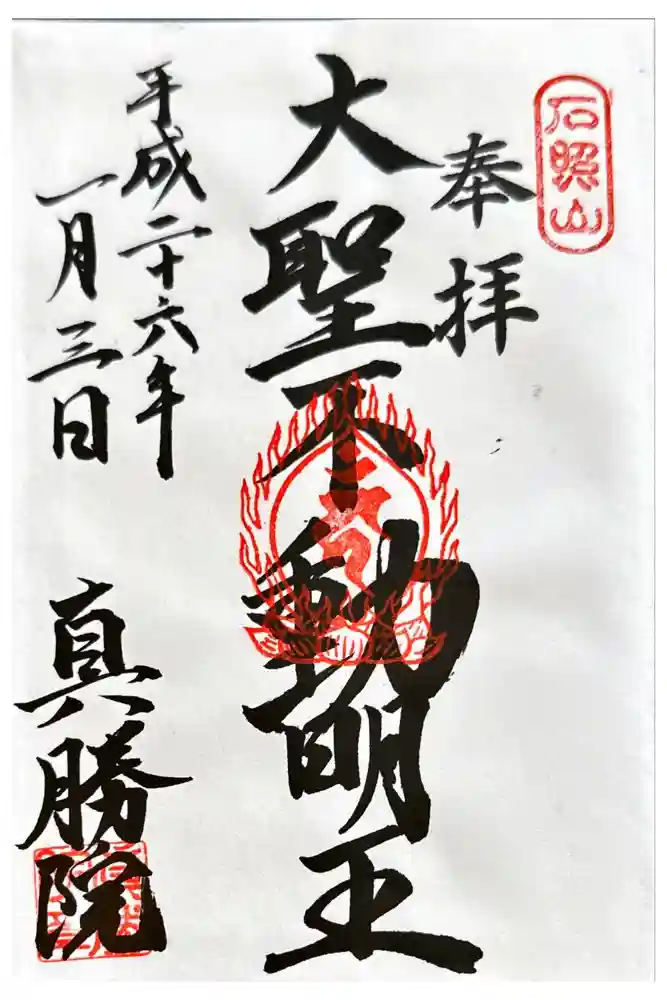 石照山
奉拝
大聖不動明王
平成二十六年
一月三日
真勝院